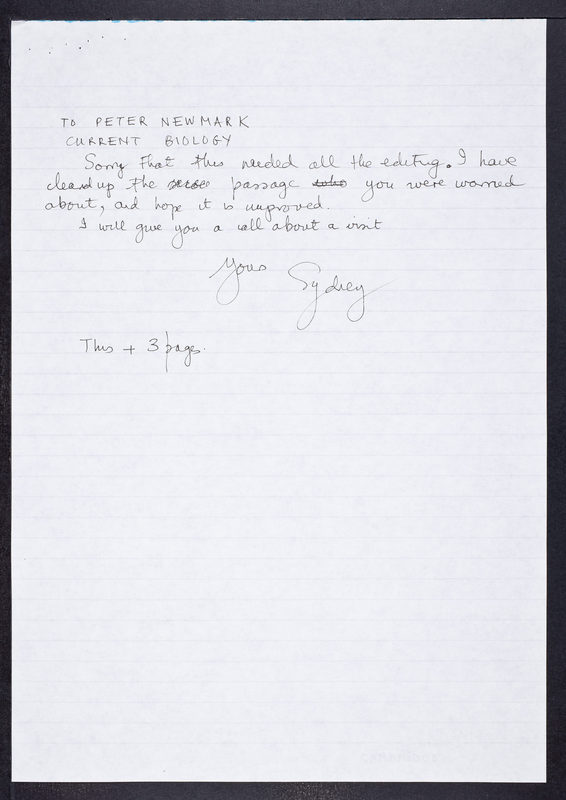 TO PETER NEWMARK
CURRENT BIOLOGY
Sorry that this needed all the editing. I have
cleaned up the passage you were worried
about, and hope it is improved.
I will give you a call about a visit
Yours Sydney
This + 3 pages.